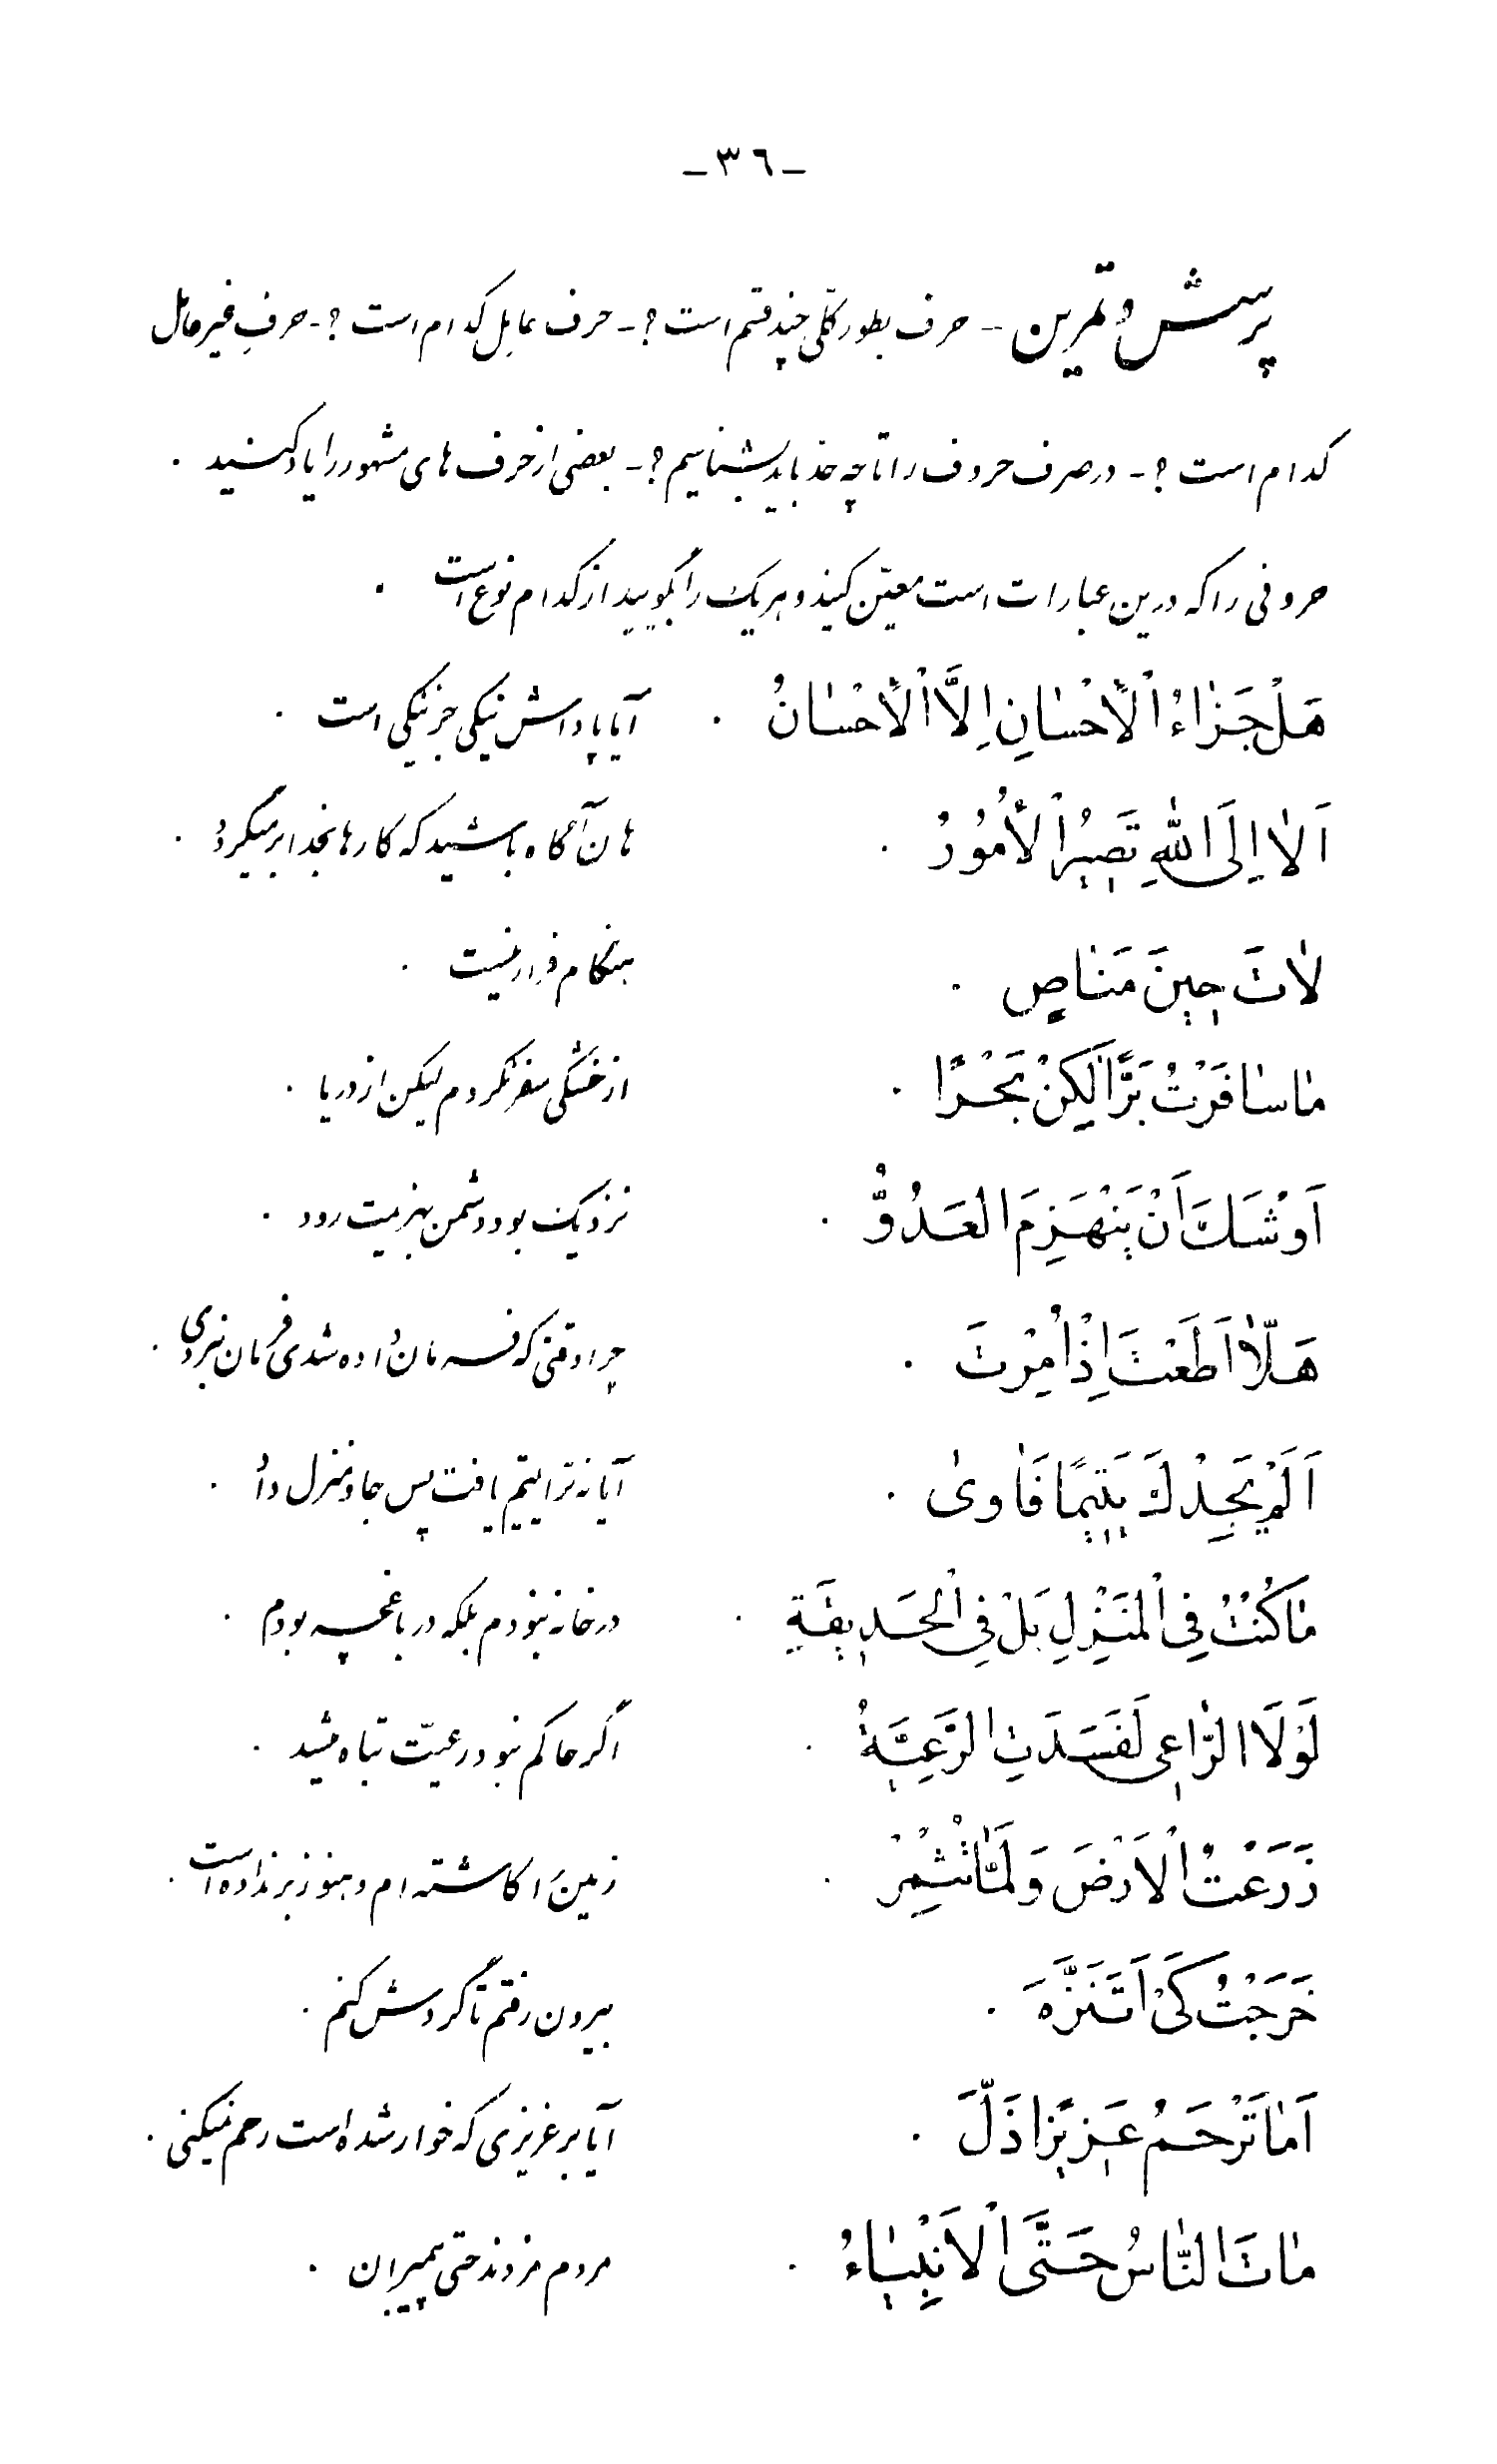 -٣٦-
پرسش و تمرین - حرف بطور کلّی چند قسم است ؟ - حرف عامل کدام است ؟ - حرفِ غیر عامل
کدام است ؟ - در صرف حروف را تا چه حد باید بشناسیم ؟ - بعضی از حرف های مشهور را یاد کنید .
حروفی را که درین عبارات است معیّن کنید و هریک را بگویید از کدام نوع است .
هَلْ جَزٰاءُ اْلأِحْسٰانِ اِلَّا اْلأِحْسٰانُ . آیا پاداش نیکی جز نیکی است .
اَلاٰ اِلَی اللّٰهِ تَصٖیرُ اْلأُمُورُ . هان آگاه باشید که کارها بخدا برمیگردد .
لاٰتَ حٖینَ مَنٰاصٍ . هنگام فرار نیست .
مٰا سٰافَرْتُ بَرًّا لٰکِنْ بَحْرًا . از خشکی سفر نکردم لیکن از دریا .
اَوْشَكَ اَنْ یَنْهَزِمَ الْعَدُوُّ . نزدیک بود دشمن بهزیمت رود .
هَلّاٰ اَطَعْتَ اِذْ اُمِرْتَ . چرا وقتی که فرمان داده شدی فرمان نبردی .
اَلَمْ یَجِدْكَ یَتٖیمًا فَاٰوىٰ . آیا نه ترا یتیم یافت پس جا و منزل داد .
مٰا کُنْتُ فِی اْلمَنْزِلِ بَلْ فِی اْلحَدٖیقَةِ . در خانه نبودم بلکه در باغچه بودم .
لَوْلَا الرّٰاعٖی لَفَسَدَتِ الرَّعِیَّةُ . اگر حاکم نبود رعیّت تباه میشد .
زَرَعْتُ اْلاَرْضَ وَ لَمّٰا تُثْمِرْ . زمین را کاشته ام و هنوز بر نداده است .
خَرَجْتُ کَیْ اَتَنَزَّهَ . بیرون رفتم تا گردش کنم .
اَمٰا تَرْحَمُ عَزٖیزًا ذَلَّ . آیا بر عزیزی که خوار شده است رحم نمیکنی .
مٰاتَ النّٰاسُ حَتَّی اْلاَنْبِیٰاءُ . مردم مردند حتی پیمبران .